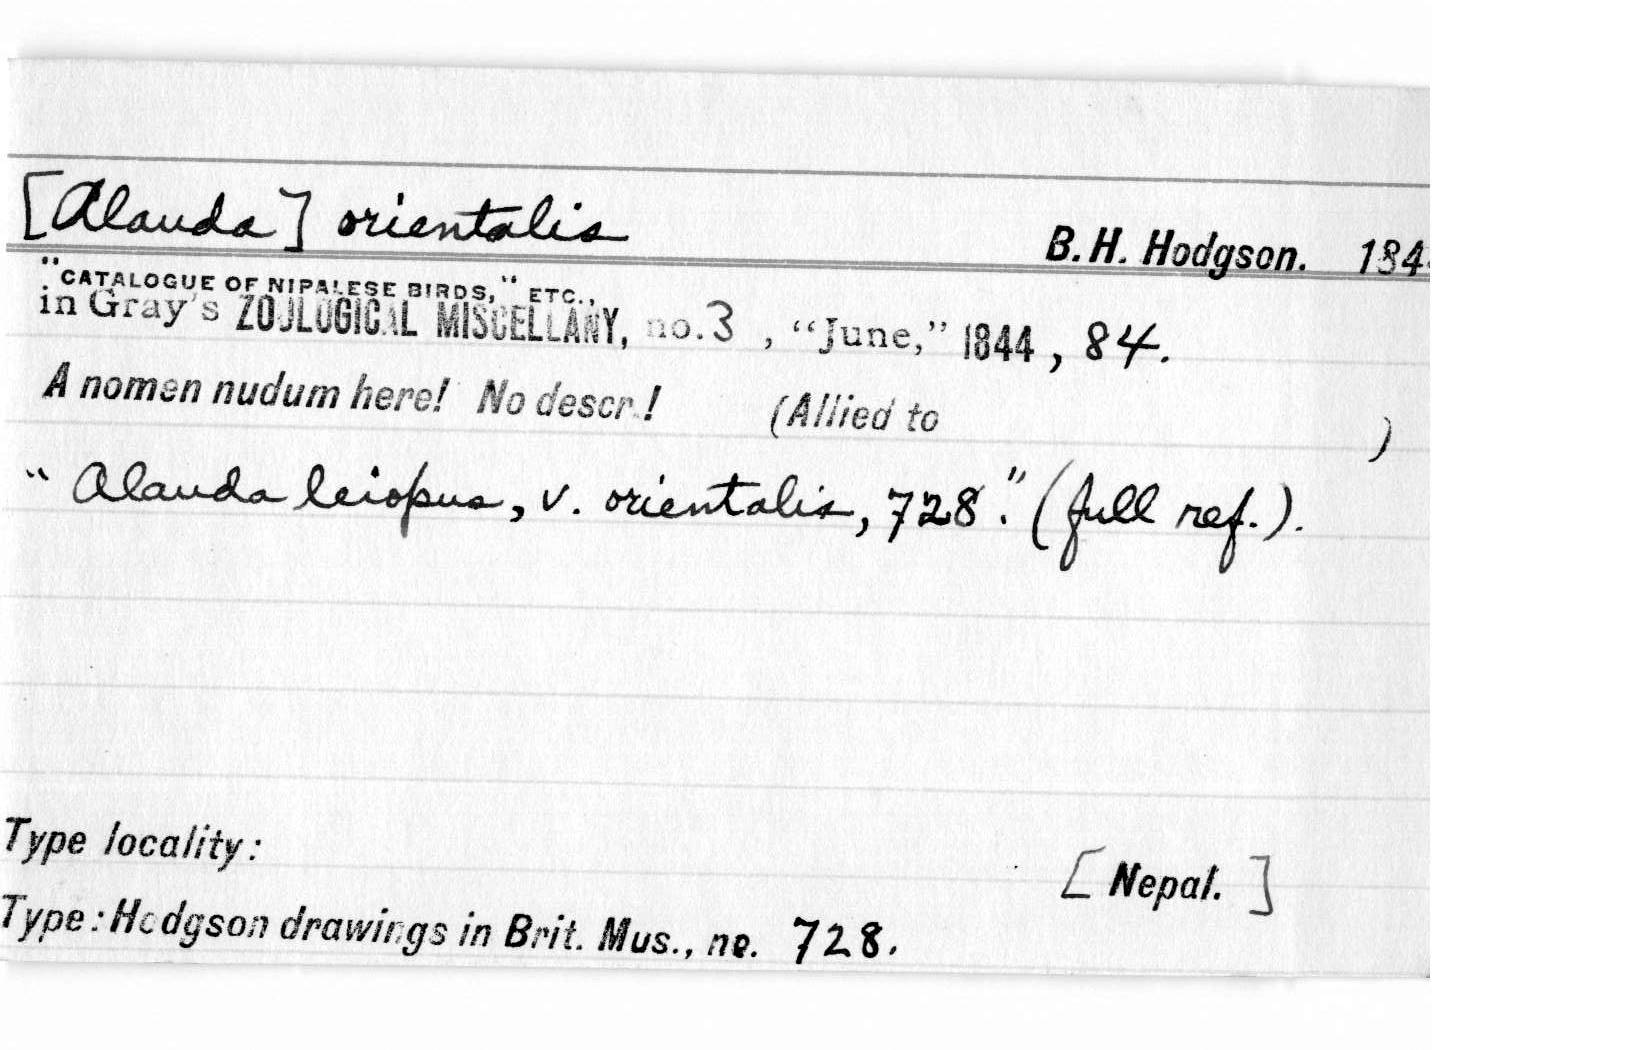 [Alauda] orientalis B. H. Hodgson. 184
"CATALOGUE OF NIPALESE BIRDS," ETC.,
in Gray's ZOOLOGICAL MISCELLANY, no. 3, "June," 1844, 84.
A nomen nudum here! No descr.! (Allied to )
"Alauda leiopus, v. orientalis, 728." (full ref.).
Type locality: [Nepal.]
Type: Hodgson drawings in Brit. Mus., no. 728.